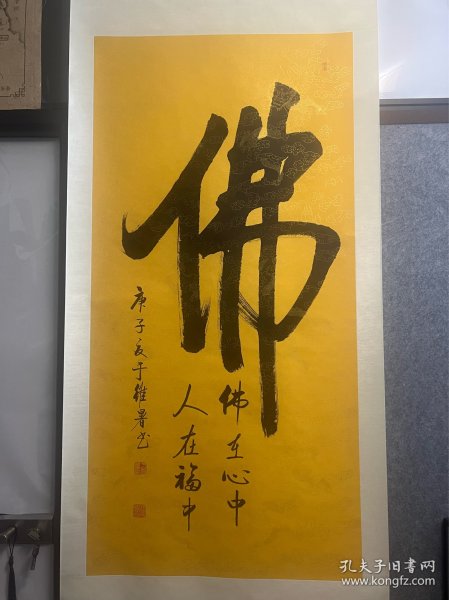 佛
佛在心中
人在福中
庚子夏于维暑书
孔夫子旧书网
www.kongfz.com